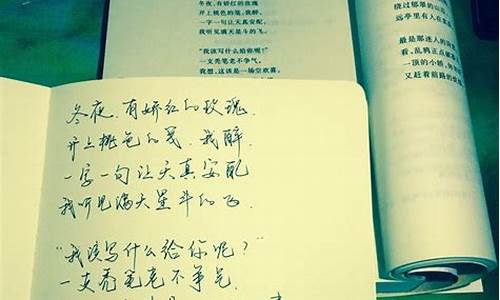 冬夜,有娇红的玫瑰
开上桃色的笺,我醉,
一字一句让天真安配
我听见满天星斗的飞.
"我该写什么给你呢?"
一支秃笔老不争气,
冬夜,有娇红的玫瑰
开上桃色的笺,我醉,
一字一句让天真安配,
我听见满天星斗的飞。
“我该写什么给你呢?”
一支秃笔老不争气,
我想,这该是一场空欢喜,
绕过郁翠的山
远亭里有人在
最是那迷人的
看,乱鸦正点
一顶的小轿,
又赶着前路的